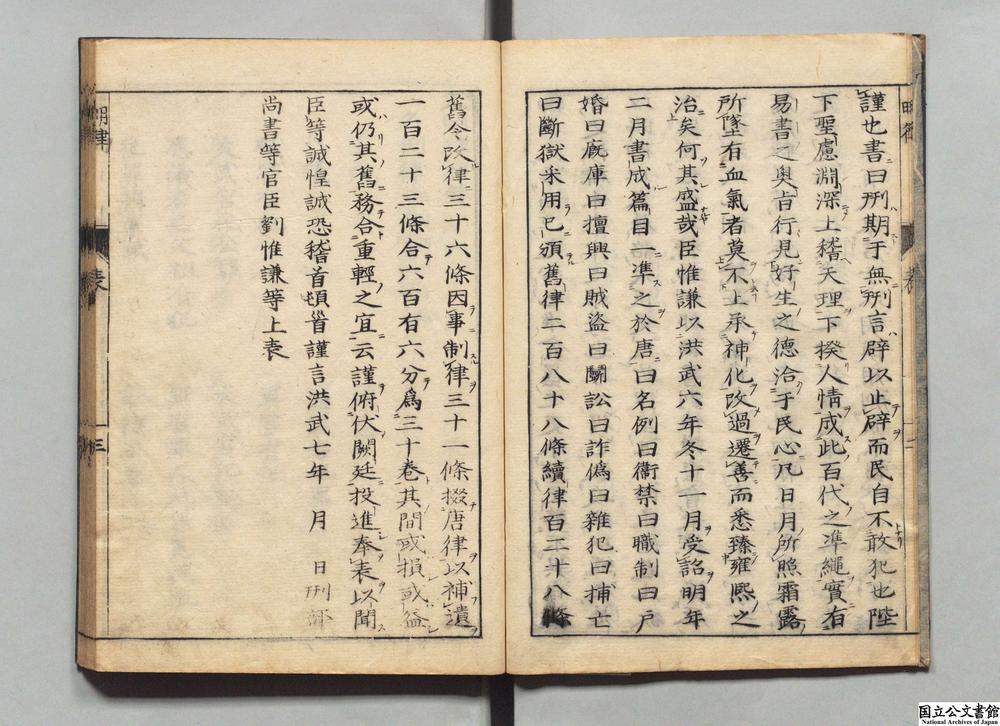 謹也書曰刑期于無刑言辟以止辟而民自不敢犯也陛
下聖慮淵深上稽天理下揆人情成此百代之準繩實有
易書之奥旨行見好生之德洽于民心凡日月所照霜露
所墜有血氣者莫不上承神化改過遷善而悉臻雍熙之
治矣何其盛哉臣惟謙以洪武六年冬十一月受詔明年
二月書成篇目一準之於唐曰名例曰衞禁曰職制曰戶
婚曰廐庫曰擅興曰賊盜曰鬭訟曰詐僞曰雜犯曰捕亡
曰斷獄采用已頒舊律二百八十八條續律百二十八條
舊令改律三十六條因事制律三十一條掇唐律以補遺
一百二十三條合六百有六分爲三十卷其間或損或益
或仍其舊務合重輕之宜云謹俯伏闕廷投進奉表以聞
臣等誠惶誠恐稽首頓首謹言洪武七年 月 日刑部
尚書等官臣劉惟謙等上表
明律 表 三
国立公文書館
National Archives of Japan